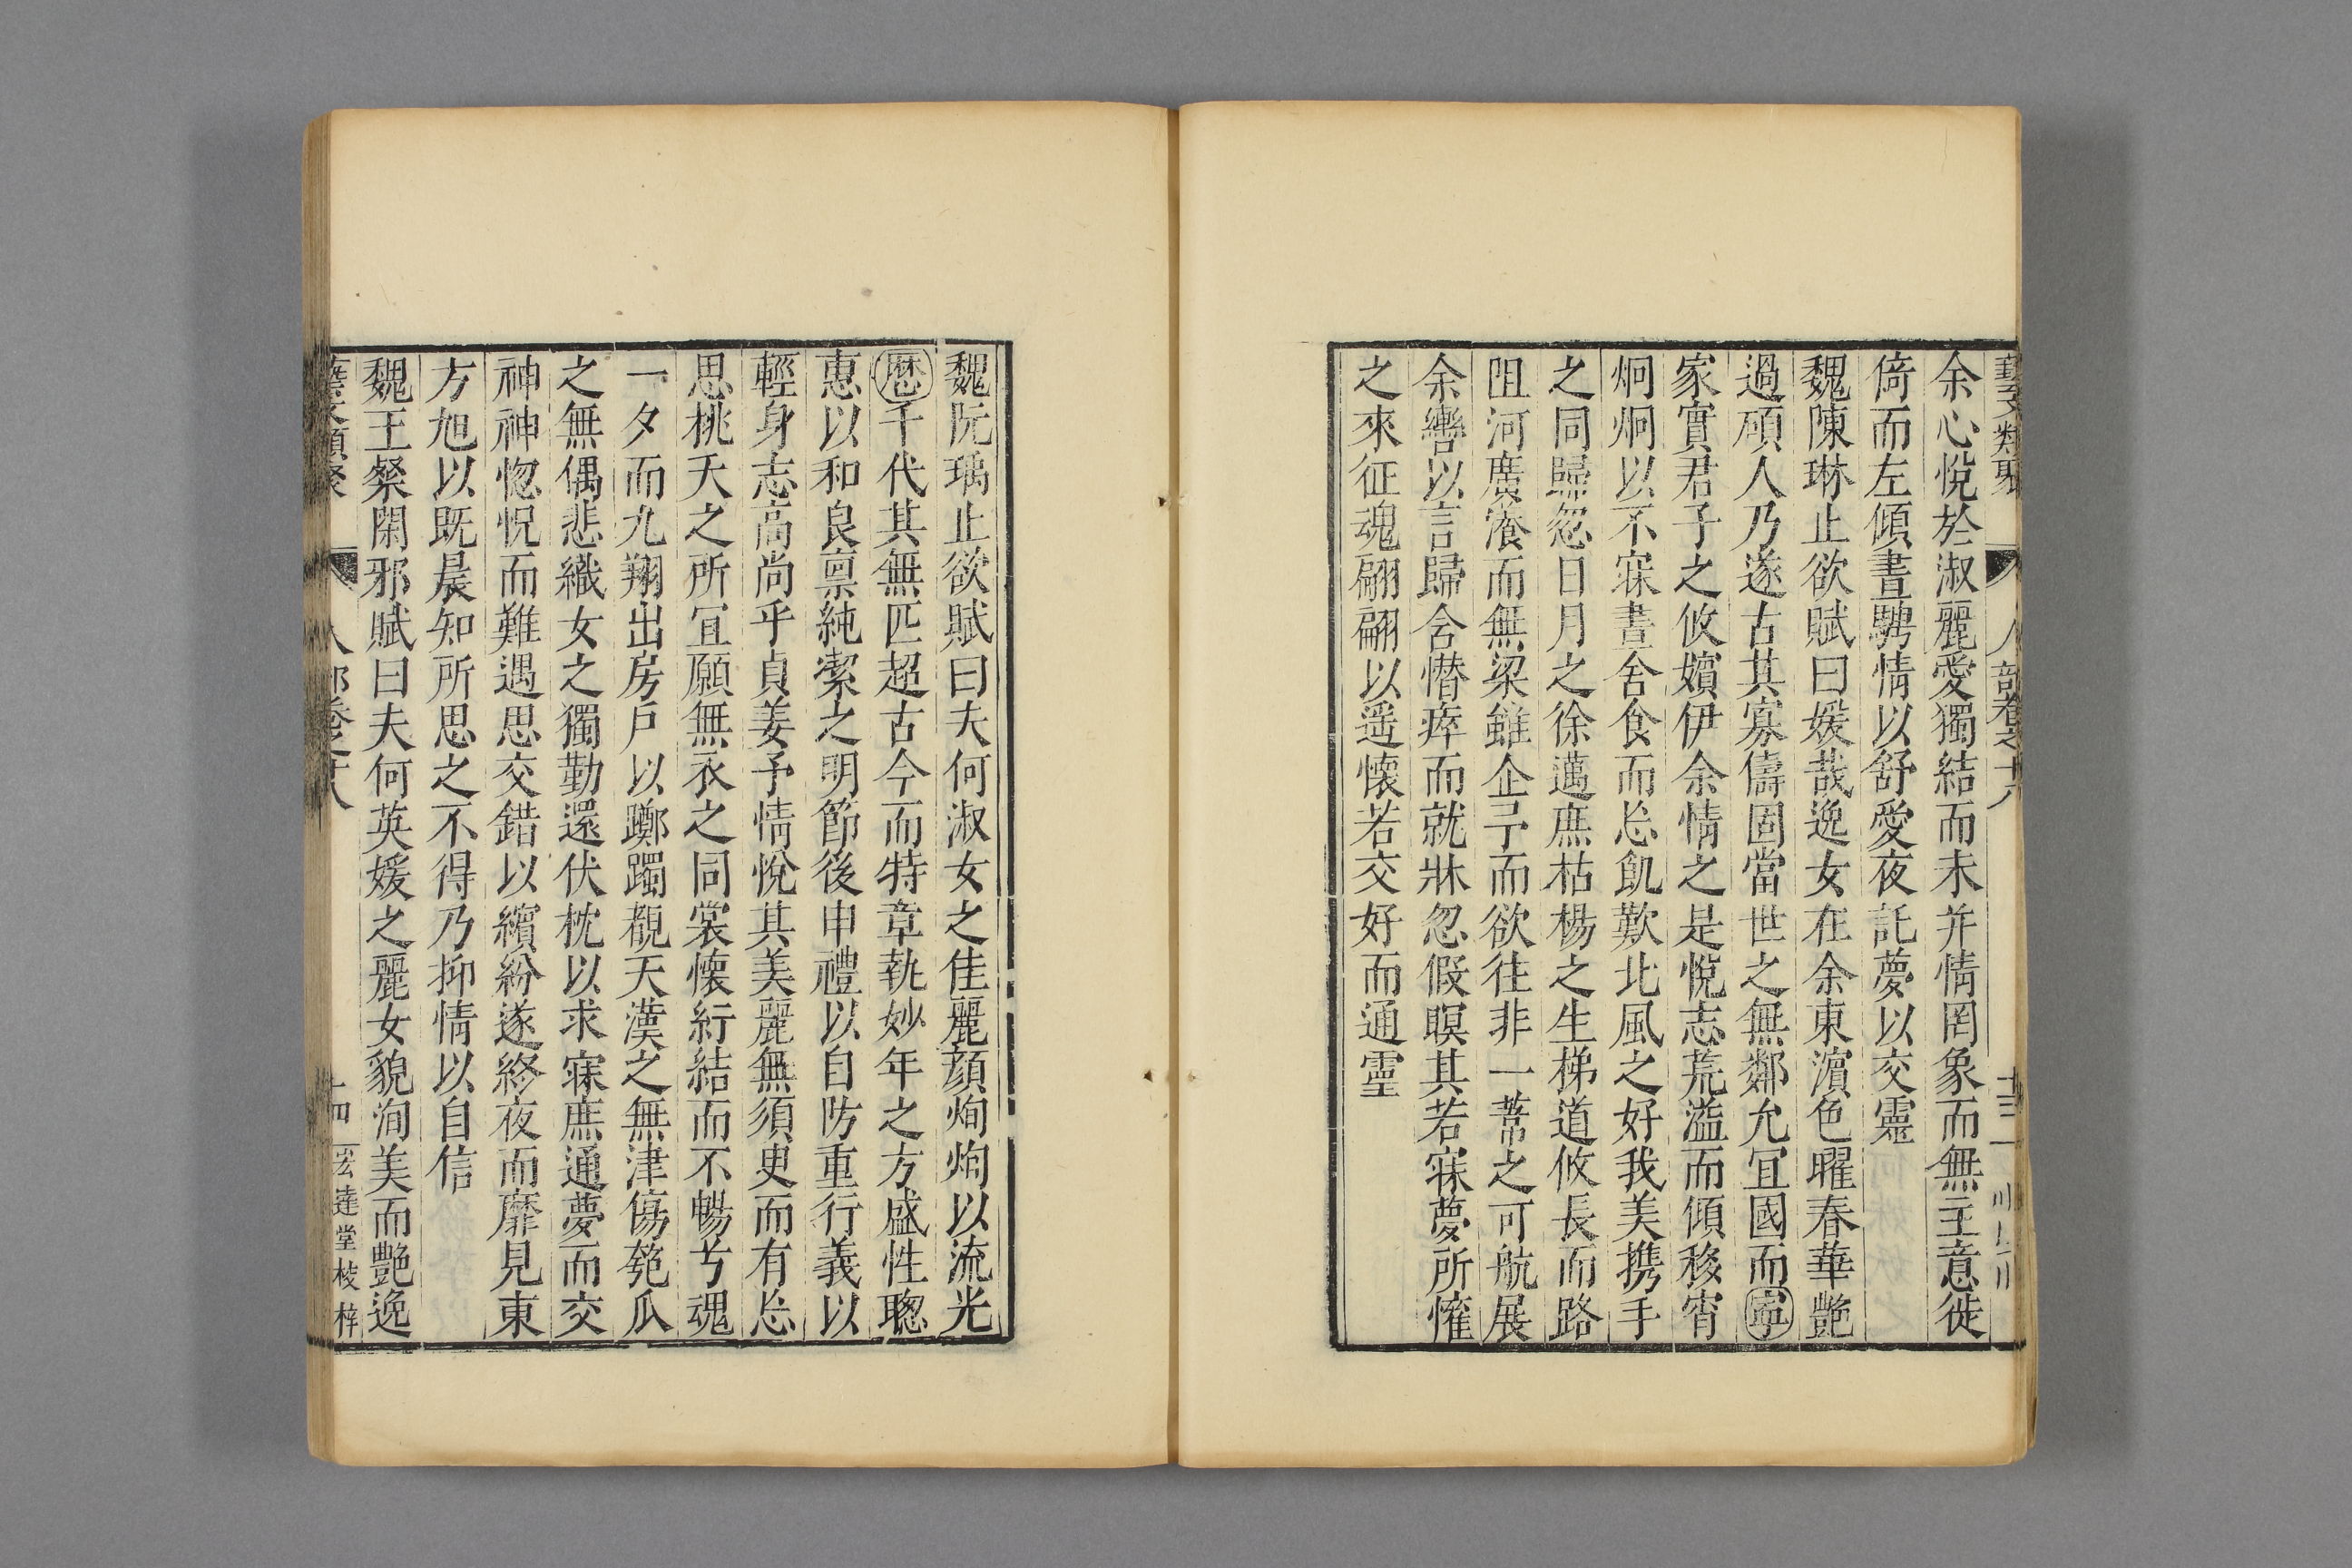 藝文類聚 人部卷之十八 十三
余心悅於淑麗愛獨結而未并情罔象而無主意徙
倚而左傾晝騁情以舒愛夜託夢以交靈
魏陳琳止欲賦曰媛哉逸女在余東濵色曜春華艶
過碩人乃遂古其寡儔固當世之無鄰允冝國而寧
家實君子之攸嬪伊余情之是悅志荒溢而傾移宵
炯炯以不寐晝舍食而忘飢歎北風之好我美携手
之同歸忽日月之徐邁庶枯楊之生梯道攸長而路
阻河廣瀁而無梁雖企予而欲往非一葦之可航展
余轡以言歸含憯瘁而就牀忽假暝其若寐夢所懽
之來征魂翩翩以遥懷若交好而通靈
魏阮瑀止欲賦曰夫何淑女之佳麗顔炯炯以流光
歷千代其無匹超古今而特章執妙年之方盛性聰
惠以和良禀純潔之明節後申禮以自防重行義以
輕身志高尚乎貞姜予情悅其美麗無須臾而有忘
思桃夭之所冝願無衣之同裳懷紆結而不暢兮魂
一夕而九翔出房戶以躑躅覩天漢之無津傷匏瓜
之無偶悲織女之獨勤還伏枕以求寐庶通夢而交
神神惚怳而難遇思交錯以繽紛遂終夜而靡見東
方旭以既晨知所思之不得乃抑情以自信
魏王粲閑邪賦曰夫何英媛之麗女貌洵美而艶逸
藝文類聚 人部卷之十八 十四 宏達堂校梓